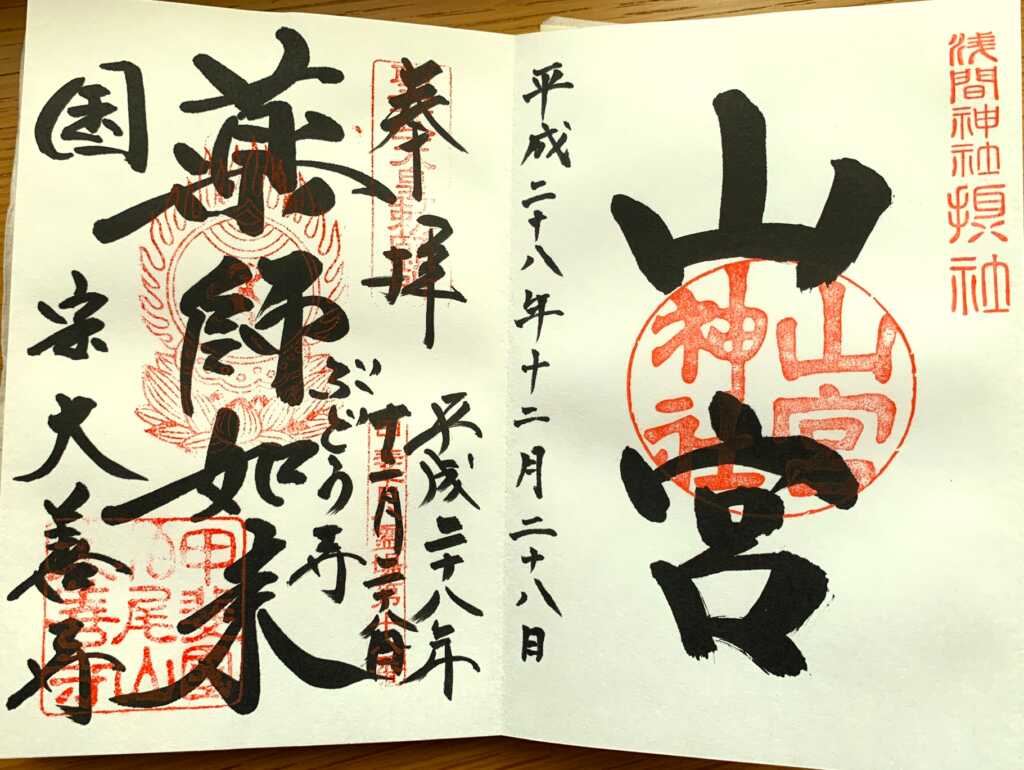 浅間神社摂社
山宮
山宮
神社
平成二十八年十二月二十八日
奉拝
平成二十八年
十二月二十八日
ぶどう寺
薬師如来
国宗大善寺
甲斐国
柏尾山
大善寺